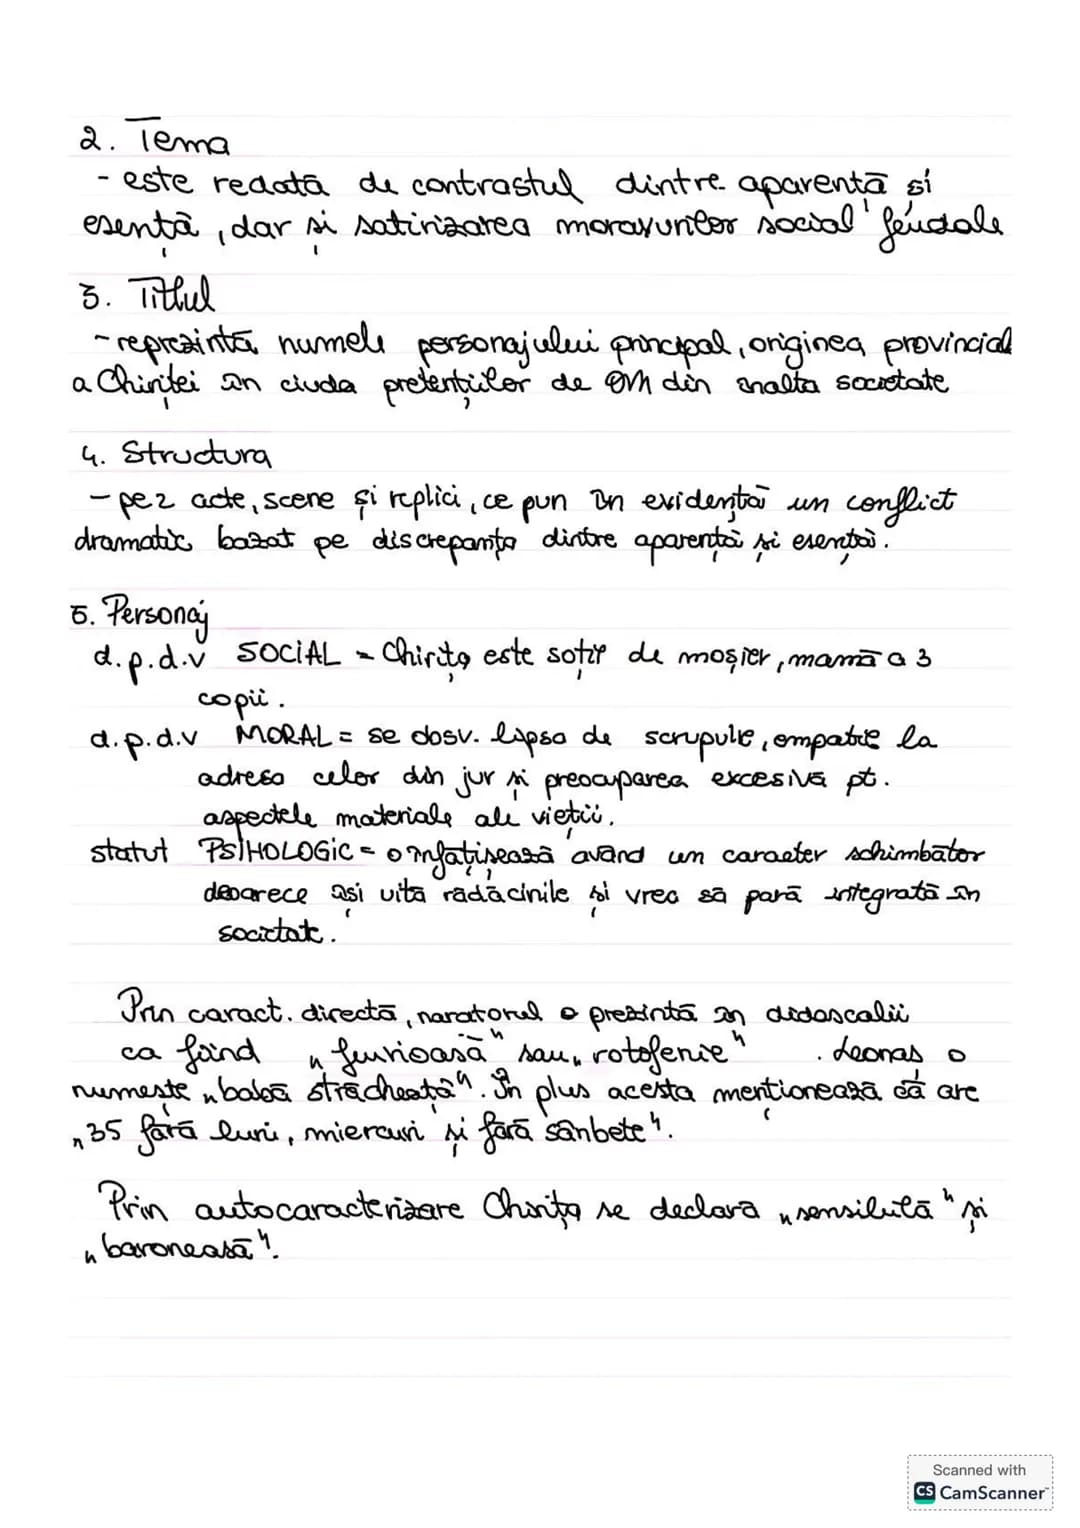 2. Tema
- este redată de contrastul dintre aparență și
esență, dar și satirizarea moravurilor social feudale
3. Titlul
- reprezintă numele personajului principal, originea provincial
a Chiriței în ciuda pretențiilor de OM din înalta societate
4. Structura
- pe 2 acte, scene și replici, ce pun în evidență un conflict
dramatic bazat pe discrepanța dintre aparență și esență.
5. Personaj
d.p.d.v SOCIAL = Chirița este soție de moșier, mamă a 3
copii.
d.p.d.v MORAL = se dosv. lipsa de scrupule, empatie la
adresa celor din jur și preocuparea excesivă pt.
aspectele materiale ale vieții.
statut PSIHOLOGIC = o înfățisează având un caracter schimbător
deoarece își uită rădăcinile și vrea să pară integrată în
societate.
Prin caract. directă, naratorul o prezintă în didascalii
ca fiind „furioasă" sau „rotofenie". Leonaș o
numește „babă stracheată". În plus acesta menționează că are
„35 fără luni, miercuri și fără sâmbete".
Prin autocaracterizare Chirița se declară „sensibilă" și
„baroneasă".
Scanned with
CS CamScanner